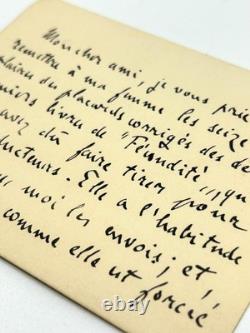 Mon cher ami, je vous prie
remettre à ma femme les seize
placards corrigés des de
niers livres de "Fécondité", qu
avez dû faire tirer pour
ducteurs. Elle a l'habitude
moi les envois; et
comme elle est forcée
ehw.com